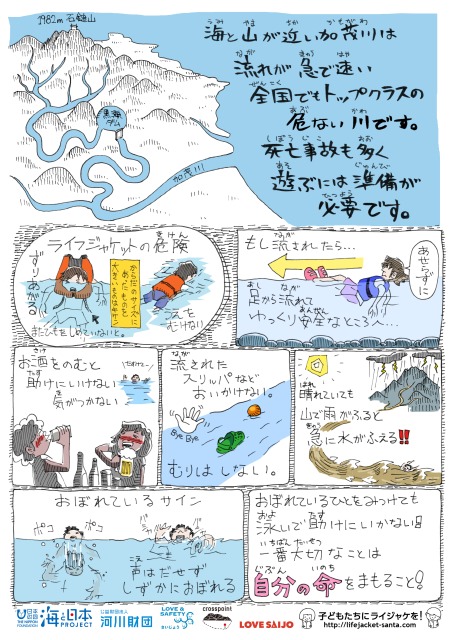 1982m 石鎚山
海と山が近い加茂川は
流れが急で速い
全国でもトップクラスの
危ない川です。
死亡事故も多く
遊ぶには準備が
必要です。
黒瀬ダム
加茂川
ライフジャケットの危険
ずりあがる
またひもをしめていないと。
からだのサイズに
あったものを
大きいものはキケン
うえを
むけない
もし流されたら…
あせらずに
足から流れて
ゆっくり安全なところへ…
お酒をのむと
助けにいけない
気がつかない
流された
スリッパなど
おいかけない。
Bye Bye
むりはしない。
晴れていても
山で雨がふると
急に水がふえる!!
おぼれているサイン
ポコ
ポコ
声はだせず
しずかにおぼれる
おぼれているひとをみつけても
泳いで助けにいかない!
一番大切なことは
自分の命をまもること!
日本財団
THE NIPPON FOUNDATION
海と日本
PROJECT
公益財団法人
河川財団
LOVE & SAFETY
さいじょう
crosspoint
LOVE SAIJO
子どもたちにライジャケを!
http://lifejacket-santa.com